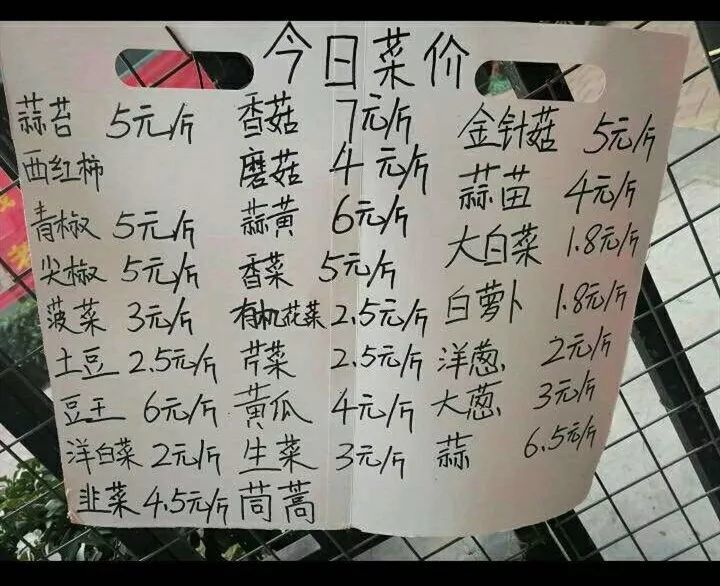 今日菜价
蒜苔 5元/斤 香菇 7元/斤 金针菇 5元/斤
西红柿 磨菇 4元/斤 蒜苗 4元/斤
青椒 5元/斤 蒜黄 6元/斤 大白菜 1.8元/斤
尖椒 5元/斤 香菜 5元/斤 白萝卜 1.8元/斤
菠菜 3元/斤 有机花菜 2.5元/斤 洋葱 2元/斤
土豆 2.5元/斤 芹菜 2.5元/斤 大葱 3元/斤
豆王 6元/斤 黄瓜 4元/斤 蒜 6.5元/斤
洋白菜 2元/斤 生菜 3元/斤
韭菜 4.5元/斤 茼蒿